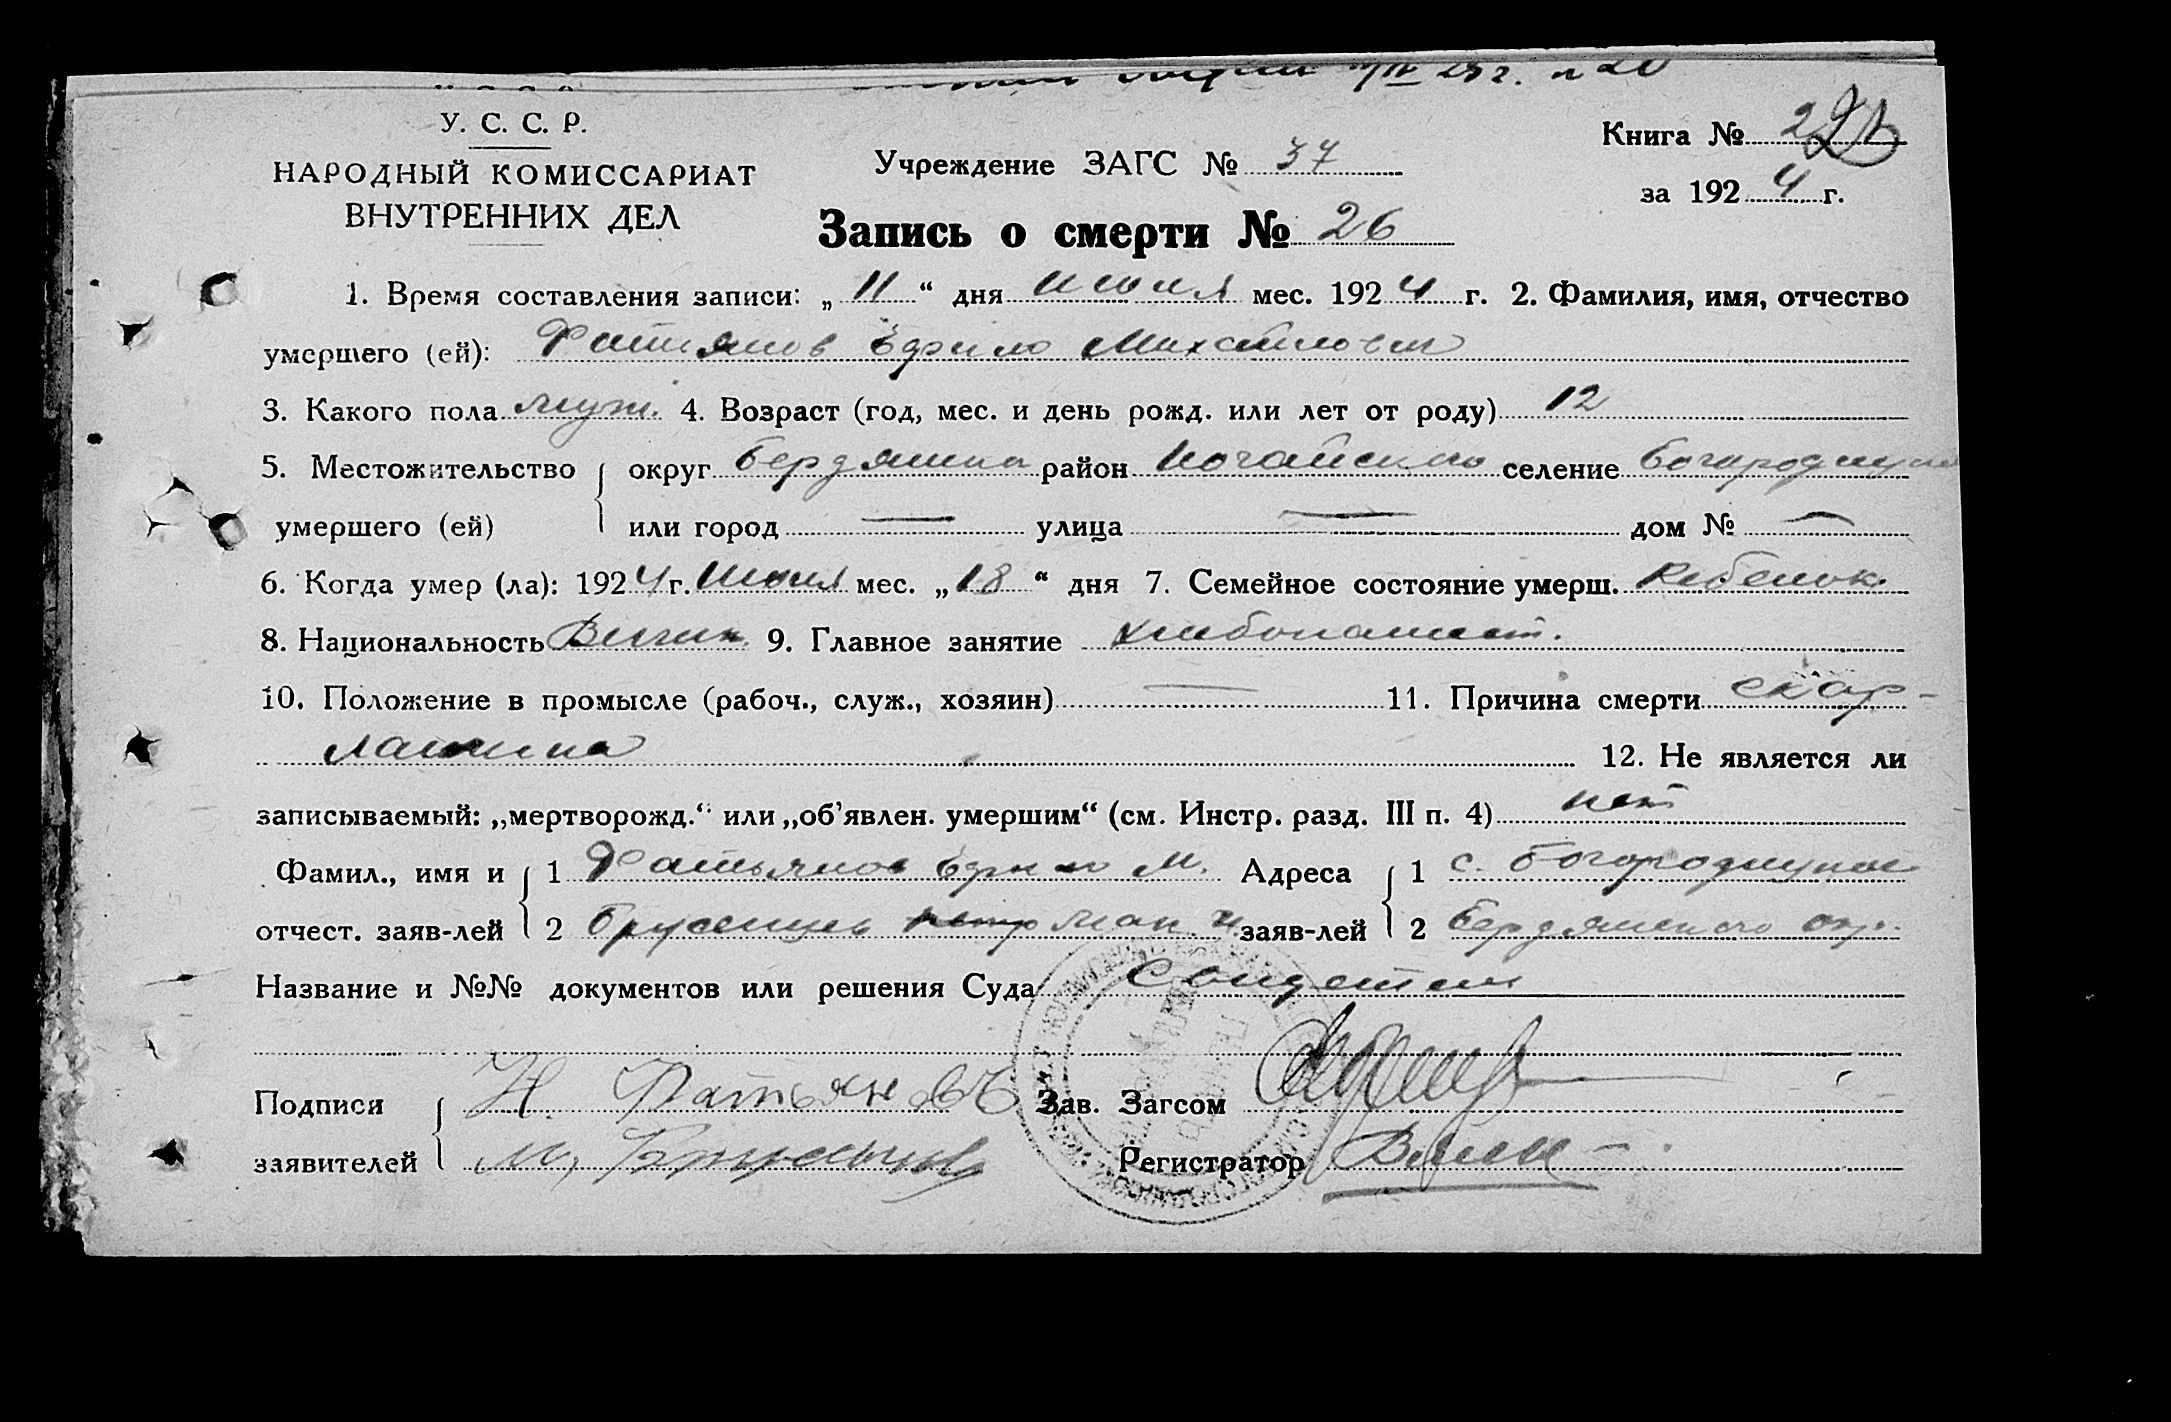 У. С. С. Р.
НАРОДНЫЙ КОМИССАРИАТ
ВНУТРЕННИХ ДЕЛ
Учреждение ЗАГС № 37
Книга №
за 1924 г.
Запись о смерти № 26
1. Время составления записи: „11“ дня июля мес. 1924 г. 2. Фамилия, имя, отчество
умершего (ей): Фатьянов Михайлович
3. Какого пола муж. 4. Возраст (год, мес. и день рожд. или лет от роду) 12
5. Местожительство округ Бердянский район Ногайский селение Богородицкое
умершего (ей) или город — улица — дом № —
6. Когда умер (ла): 1924 г. мес. „18“ дня 7. Семейное состояние умерш. Ребенок.
8. Национальность 9. Главное занятие хлебопашест.
10. Положение в промысле (рабоч., служ., хозяин) — 11. Причина смерти скар-
латина 12. Не является ли
записываемый: „мертворожд.“ или „об'явлен. умершим“ (см. Инстр. разд. III п. 4) нет
Фамил., имя и 1 Фатьянов М. Адреса 1 с. Богородицкое
отчест. заяв-лей 2 заяв-лей 2 Бердянского окр.
Название и №№ документов или решения Суда
Подписи Н. Фатьяновъ Зав. Загсом
заявителей М. Регистратор